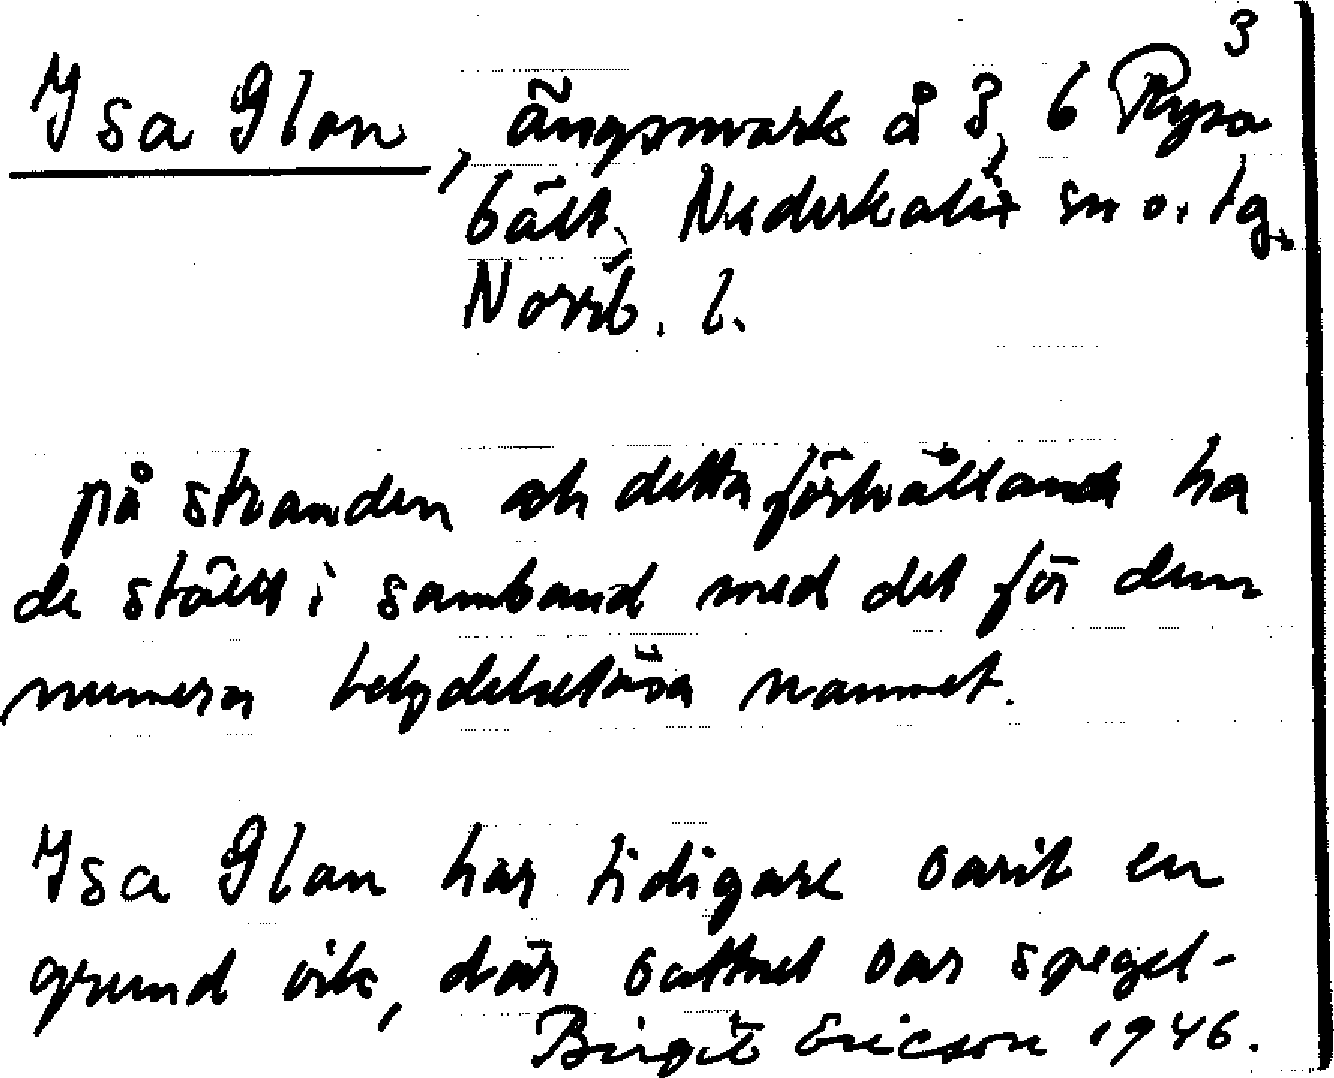 3
Isa Glan, ängsmark å 8, 6 Ryssa
bält, Nederkalix sn o. tg,
Norrb. l.
på stranden och detta förhållande ha
de ställt i samband med det för dem
numera betydelselösa namnet.
Isa Glan har tidigare varit en
grund vik, där vattnet var spegel-
Birgit Ericson 1946.